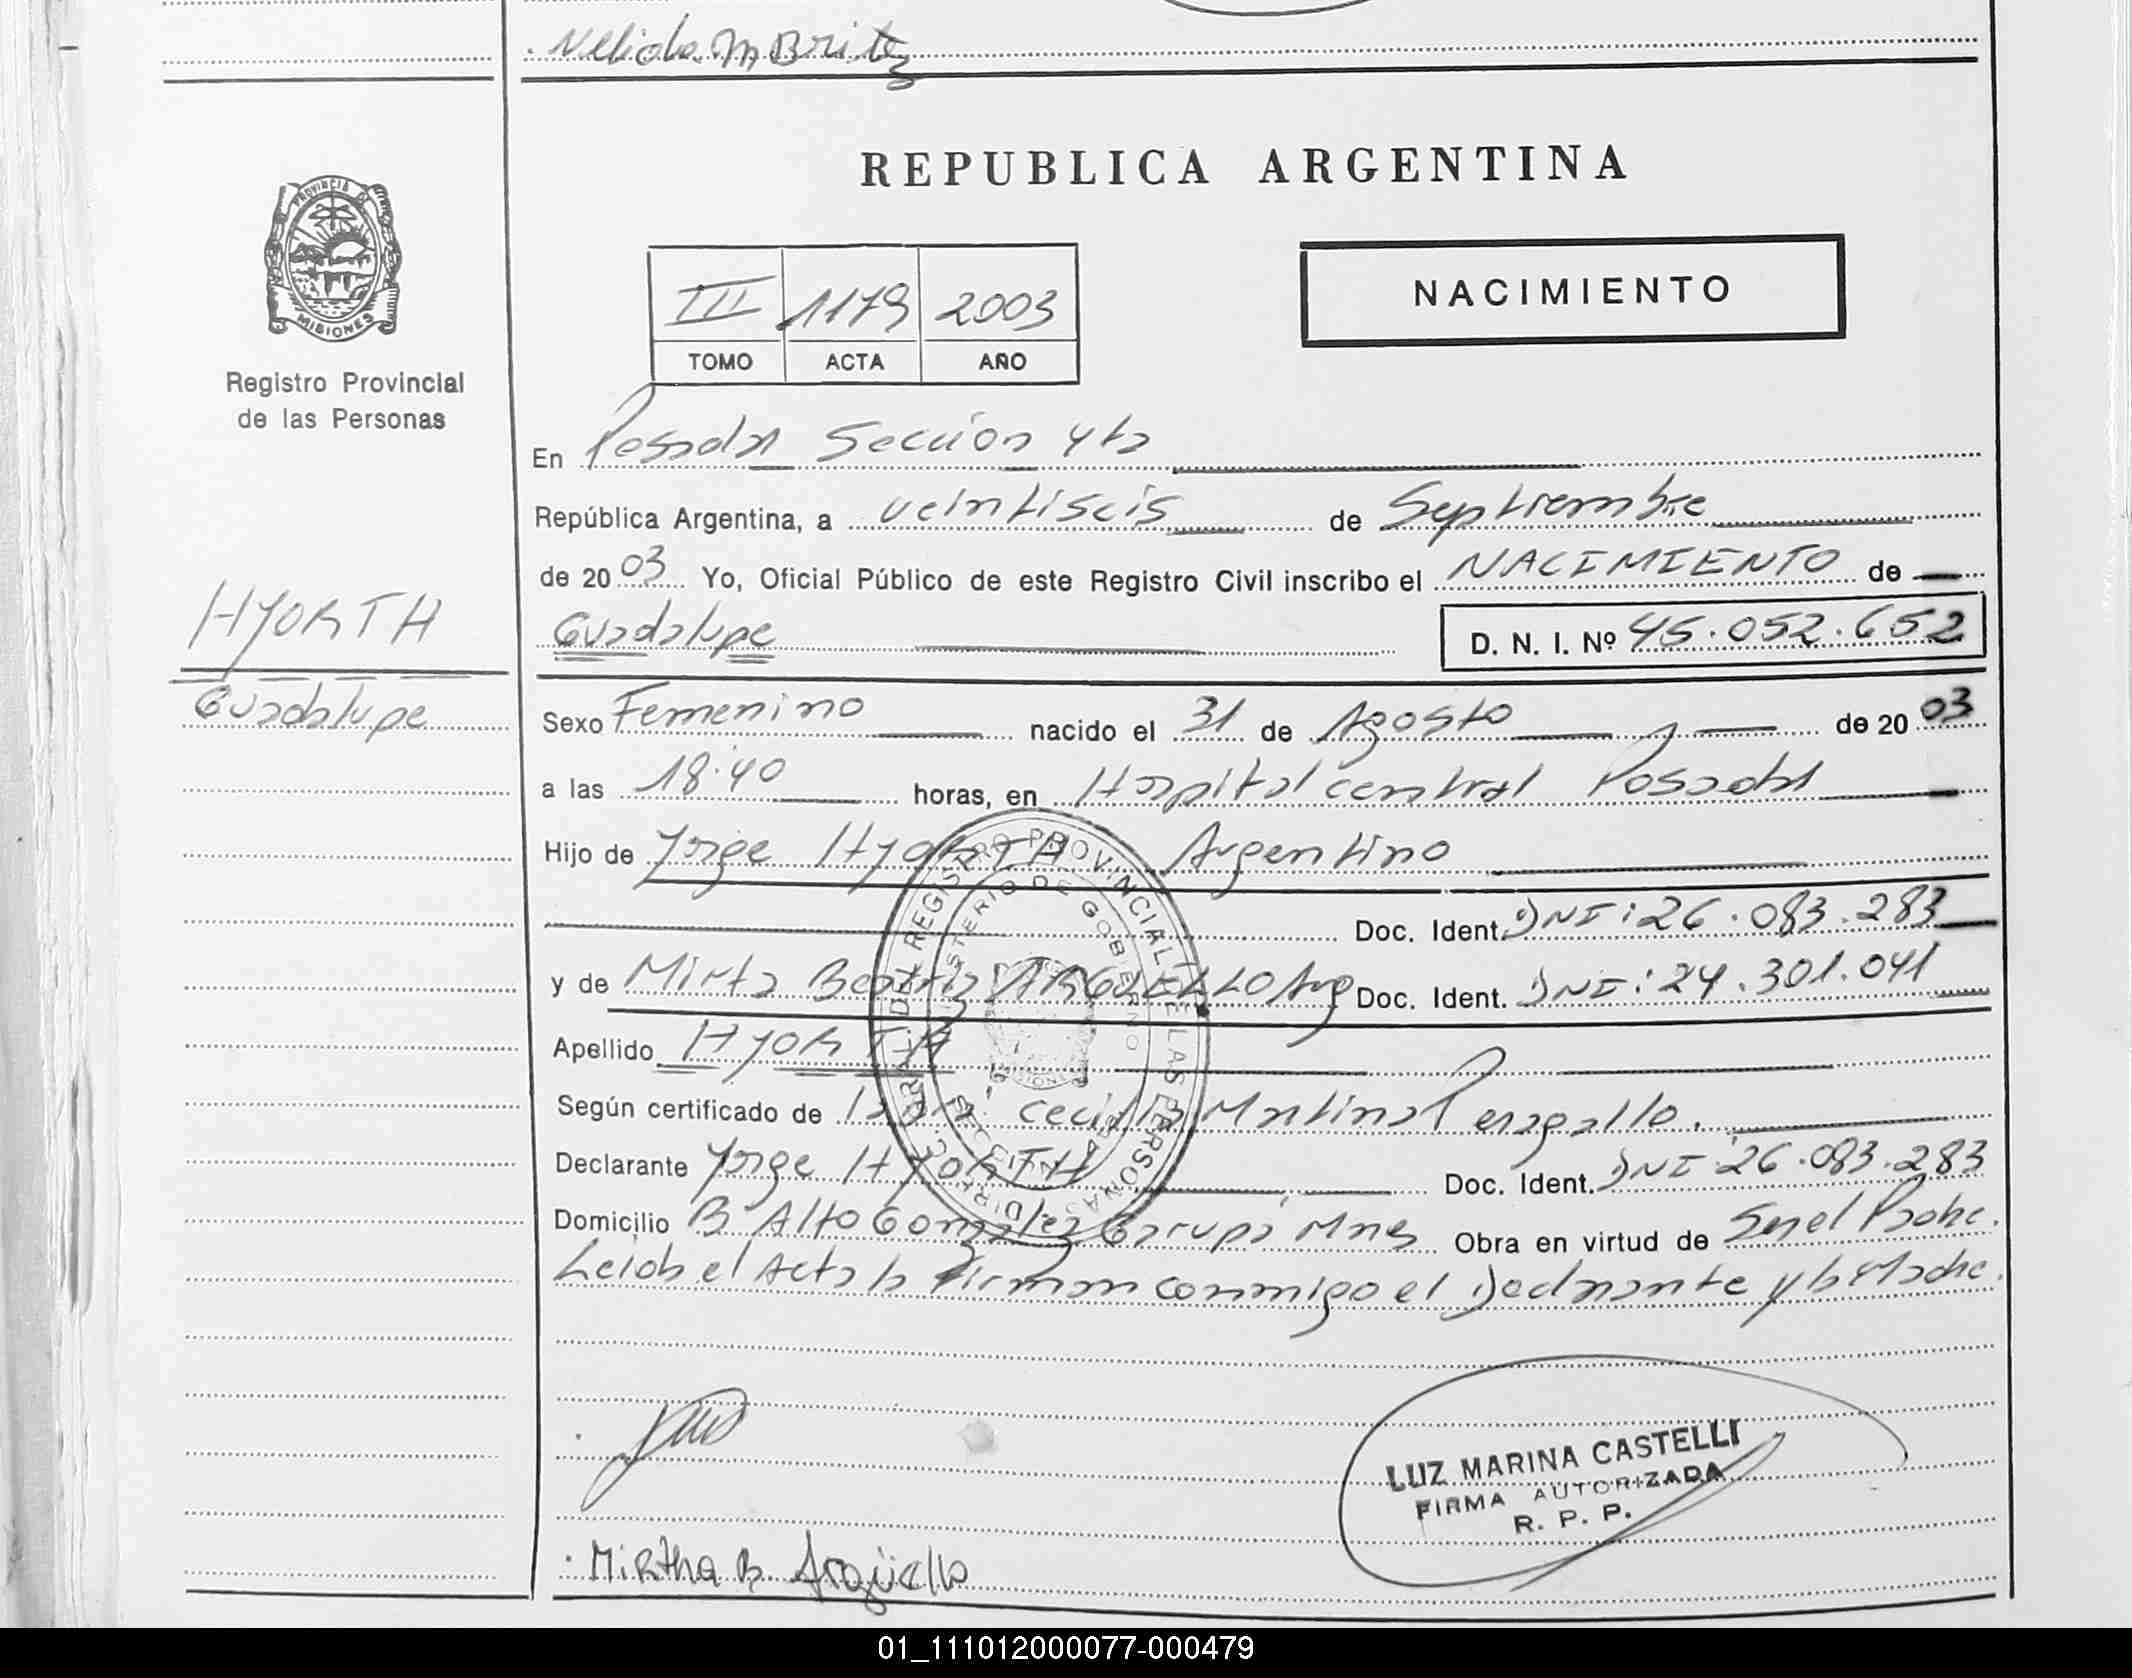 Nelida M Britez
REPUBLICA ARGENTINA
PROVINCIA DE
MISIONES
III 1179 2003
TOMO ACTA AÑO
NACIMIENTO
Registro Provincial
de las Personas
En Posadas Sección 4ta
República Argentina, a veintiseis de Septiembre
de 2003 Yo, Oficial Público de este Registro Civil inscribo el NACIMIENTO de
HYORTH
Guadalupe D. N. I. Nº 45.052.652
Guadalupe
Sexo Femenino nacido el 31 de Agosto de 2003
a las 18.40 horas, en Hospital central Posadas
Hijo de Jorge HYORTH Argentino
Doc. Ident. DNI: 26.083.283
y de Mirta Beatriz ARGUELLO Arg Doc. Ident. DNI: 24.301.041
Apellido HYORTH
Según certificado de cecilia Martina Peragallo.
Declarante Jorge HYORTH Doc. Ident. DNI 26.083.283
Domicilio B Alto Gonzalez Garupá Mnes Obra en virtud de Ser el Padre.
Leida el Acta la firman conmigo el Declarante y la Madre.
REGISTRO PROVINCIAL DE LAS PERSONAS
MINISTERIO DE GOBIERNO
LUZ MARINA CASTELLI
FIRMA AUTORIZADA
R. P. P.
Mirtha B. Argüello
01_111012000077-000479